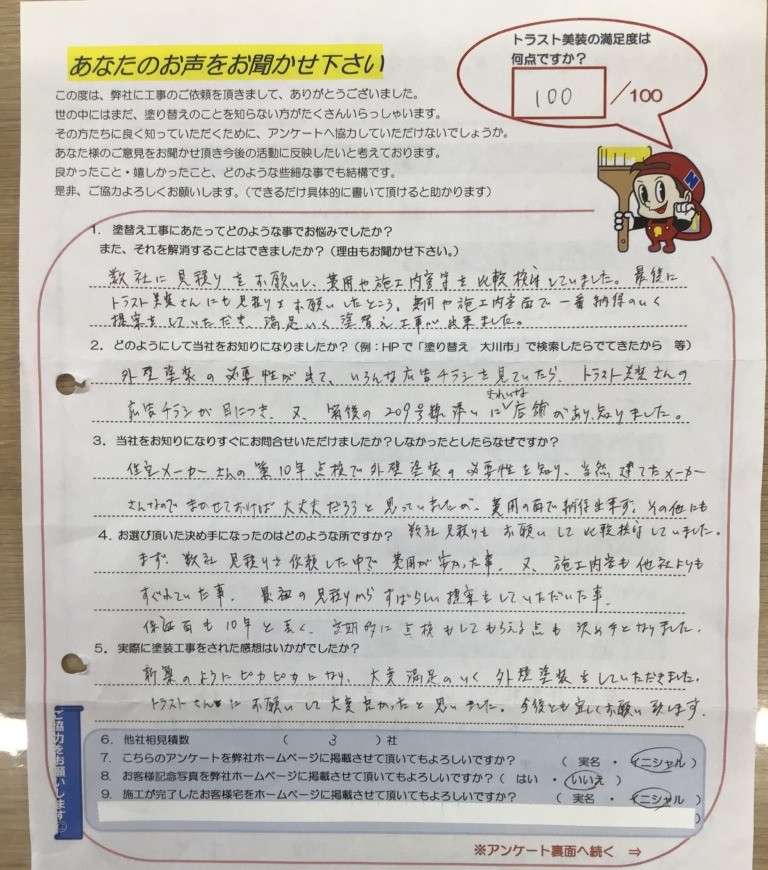 あなたのお声をお聞かせ下さい
トラスト美装の満足度は
何点ですか？
100
／100
この度は、弊社に工事のご依頼を頂きまして、ありがとうございました。
世の中にはまだ、塗り替えのことを知らない方がたくさんいらっしゃいます。
その方たちに良く知っていただくために、アンケートへ協力していただけないでしょうか。
あなた様のご意見をお聞かせ頂き今後の活動に反映したいと考えております。
良かったこと・嬉しかったこと、どのような些細な事でも結構です。
是非、ご協力よろしくお願いします。（できるだけ具体的に書いて頂けると助かります）
1. 塗替え工事にあたってどのような事でお悩みでしたか？
また、それを解消することはできましたか？（理由もお聞かせ下さい。）
数社に見積りをお願いし、費用や施工内容等を比較検討していました。最後に
トラスト美装さんにも見積りをお願いしたところ、費用や施工内容面で一番納得のいく
提案をしていただき、満足いく塗替え工事が出来ました。
2. どのようにして当社をお知りになりましたか？（例：HPで「塗り替え 大川市」で検索したらでてきたから 等）
外壁塗装の必要性が出て、いろんな広告チラシを見ていたら、トラスト美装さんの
広告チラシが目につき、又、筑後の209号線添いにきれいな店舗があり、知りました。
3. 当社をお知りになりすぐにお問合せいただけましたか？しなかったとしたらなぜですか？
住宅メーカーさんの築10年点検で外壁塗装の必要性を知り、当然建てたメーカー
さんなので まかせておけば大丈夫だろうと思っていましたが、費用の面で納得出来ず、その他にも
数社見積りをお願いして比較検討していました。
4. お選び頂いた決め手になったのはどのような所ですか？
まず、数社見積りを依頼した中で費用が安かった事、又、施工内容も他社よりも
すぐれていた事、最初の見積りからすばらしい提案をしていただいた事、
保証面も10年と長く、定期的に点検もしてもらえる点も決め手となりました。
5. 実際に塗装工事をされた感想はいかがでしたか？
新築のようにピカピカになり、大変満足のいく外壁塗装をしていただきました。
トラストさんにお願いして大変良かったと思いました。今後とも宜しくお願い致します。
ご協力をお願いします☺
6. 他社相見積数 （ 3 ）社
7. こちらのアンケートを弊社ホームページに掲載させて頂いてもよろしいですか？ （ 実名 ・ イニシャル ）
8. お客様記念写真を弊社ホームページに掲載させて頂いてもよろしいですか？（ はい ・ いいえ ）
9. 施工が完了したお客様宅をホームページに掲載させて頂いてもよろしいですか？ （ 実名 ・ イニシャル ）
）
※アンケート裏面へ続く ⇒